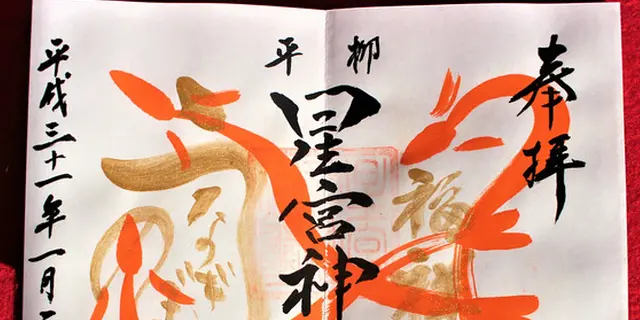 奉拝
平柳
星宮神
福
なぎ
平成三十一年一月